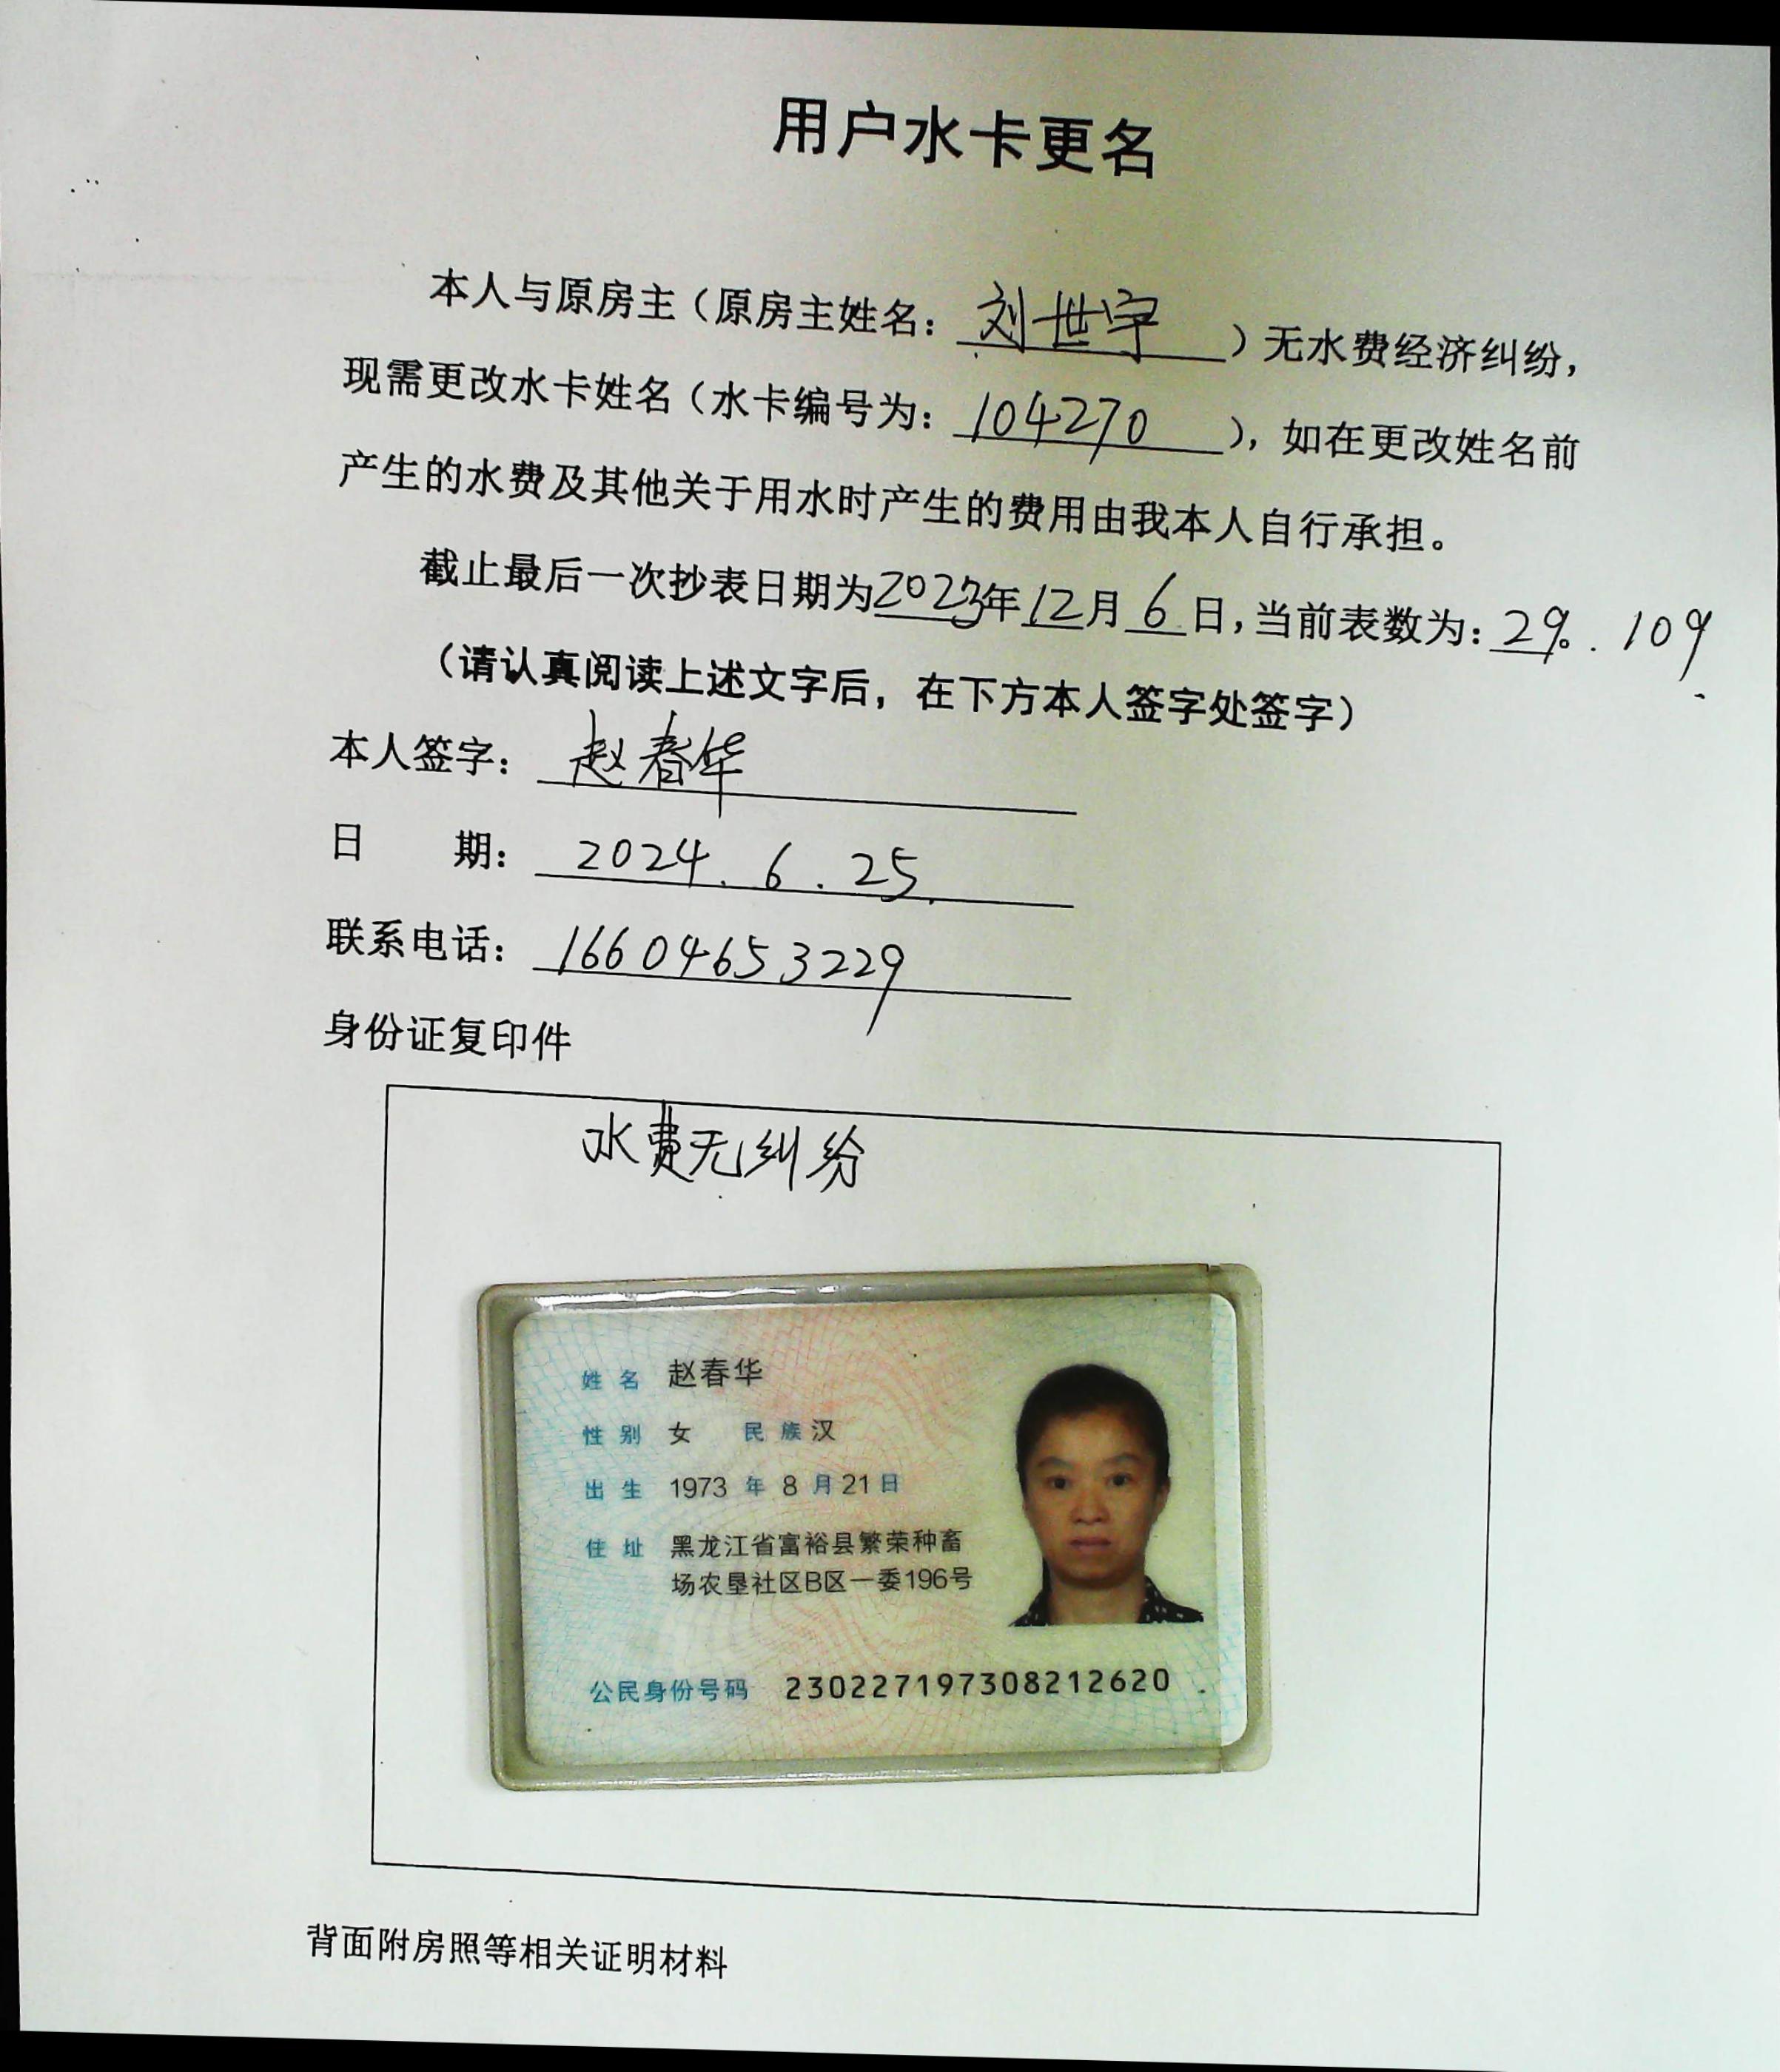 用户水卡更名
本人与原房主（原房主姓名：刘世宇）无水费经济纠纷，
现需更改水卡姓名（水卡编号为：104270），如在更改姓名前
产生的水费及其他关于用水时产生的费用由我本人自行承担。
截止最后一次抄表日期为2023年12月6日，当前表数为： . 109
（请认真阅读上述文字后，在下方本人签字处签字）
本人签字：赵春华
日 期：2024.6.25.
联系电话：16604653229
身份证复印件
水费无纠纷
姓名 赵春华
性别 女 民族 汉
出生 1973 年 8 月 21 日
住址 黑龙江省富裕县繁荣种畜
场农垦社区B区一委196号
公民身份号码 230227197308212620
背面附房照等相关证明材料